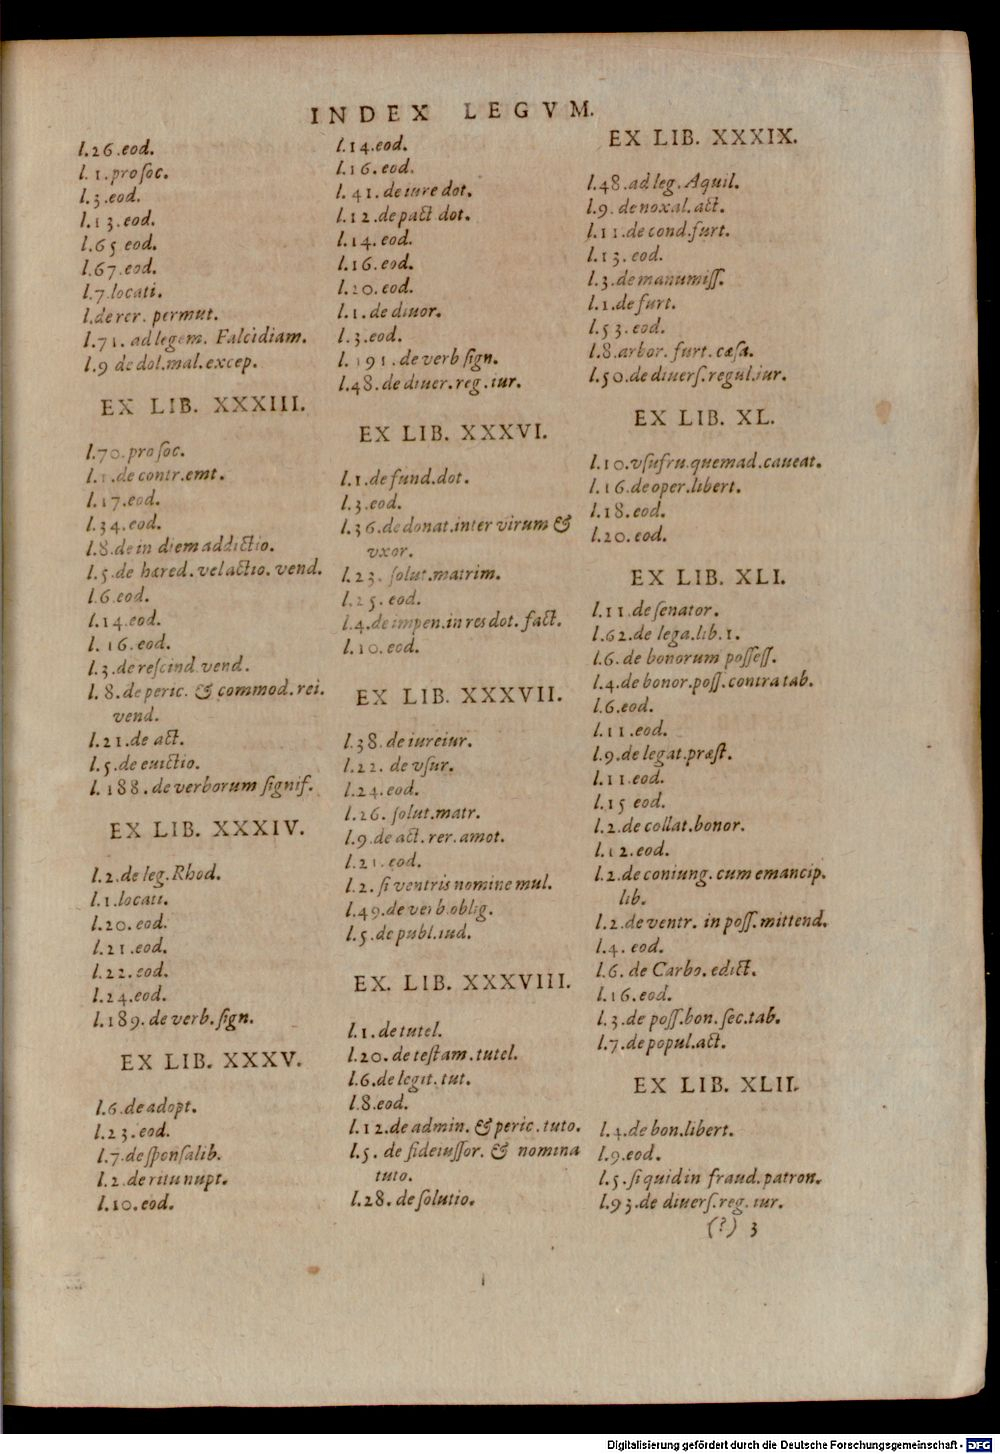 INDEX LEGVM.
l.26.eod.
l. 1.pro ſoc.
l.3.eod.
l.13.eod.
l.65 eod.
l.67.eod.
l.7.locati.
l.de rer. permut.
l.71. ad legem. Falcidiam.
l.9 de dol.mal.excep.
EX LIB. XXXIII.
l.70.pro ſoc.
l.1.de contr.emt.
l.17.eod.
l.34.eod.
l.8.de in diem addictio.
l.5.de hæred. vel actio. vend.
l.6.eod.
l.14.eod.
l. 16.eod.
l.3.de reſcind.vend.
l. 8.de peric. & commod.rei.
vend.
l.21.de act.
l.5.de euictio.
l. 188. de verborum ſignif.
EX LIB. XXXIV.
l.2.de leg.Rhod.
l.1.locati.
l.20.eod.
l.21.eod.
l.22.eod.
l.24.eod.
l.189.de verb.ſign.
EX LIB. XXXV.
l.6.de adopt.
l.23.eod.
l.7.de ſponſalib.
l.2.de ritu nupt.
l.10.eod.
l.14.eod.
l.16.eod.
l. 41. de iure dot.
l.12.de pact dot.
l.14. eod.
l.16.eod.
l.20.eod.
l.1.de diuor.
l.3.eod.
l.191.de verb ſign.
l.48.de diuer.reg.iur.
EX LIB. XXXVI.
l.1.de fund.dot.
l.3.eod.
l.36.de donat.inter virum &
vxor.
l.23. ſolut.matrim.
l.25. eod.
l.4.de impen.in res dot. fact.
l.10.eod.
EX LIB. XXXVII.
l.38.de iureiur.
l.22. de vſur.
l.24.eod.
l.26. ſolut.matr.
l.9.de act.rer.amot.
l.21.eod.
l.2. ſi ventris nomine mul.
l.49.de verb.oblig.
l.5.de publ.iud.
EX. LIB. XXXVIII.
l.1.de tutel.
l.20. de teſtam.tutel.
l.6.de legit.tut.
l.8.eod.
l.12.de admin. & peric.tuto.
l.5. de fideiuſſor. & nomina
tuto.
l.28. de ſolutio.
EX LIB. XXXIX.
l.48.ad leg.Aquil.
l.9. de noxal.act.
l.11.de cond.furt.
l.13. eod.
l.3.de manumiſſ.
l.1.de furt.
l.53.eod.
l.8.arbor. furt.cæſa.
l.50.de diuerſ.regul.iur.
EX LIB. XL.
l.10.vſufru.quemad.caueat.
l.16.de oper.libert.
l.18.eod.
l.20.eod.
EX LIB. XLI.
l.11.de ſenator.
l.62.de lega.lib.1.
l.6. de bonorum poſſeſſ.
l.4.de bonor.poſſ.contra tab.
l.6.eod.
l.11.eod.
l.9.de legat.præſt.
l.11.eod.
l.15 eod.
l.2.de collat.bonor.
l.12.eod.
l.2.de coniung.cum emancip.
lib.
l.2.de ventr. in poſſ.mittend.
l.4. eod.
l.6. de Carbo.edict.
l.16.eod.
l.3.de poſſ.bon.ſec.tab.
l.7.de popul.act.
EX LIB. XLII.
l.4.de bon.libert.
l.9.eod.
l.5.ſi quid in fraud.patron.
l.93.de diuerſ.reg.iur.
(?) 3
Digitalisierung gefördert durch die Deutsche Forschungsgemeinschaft - DFG